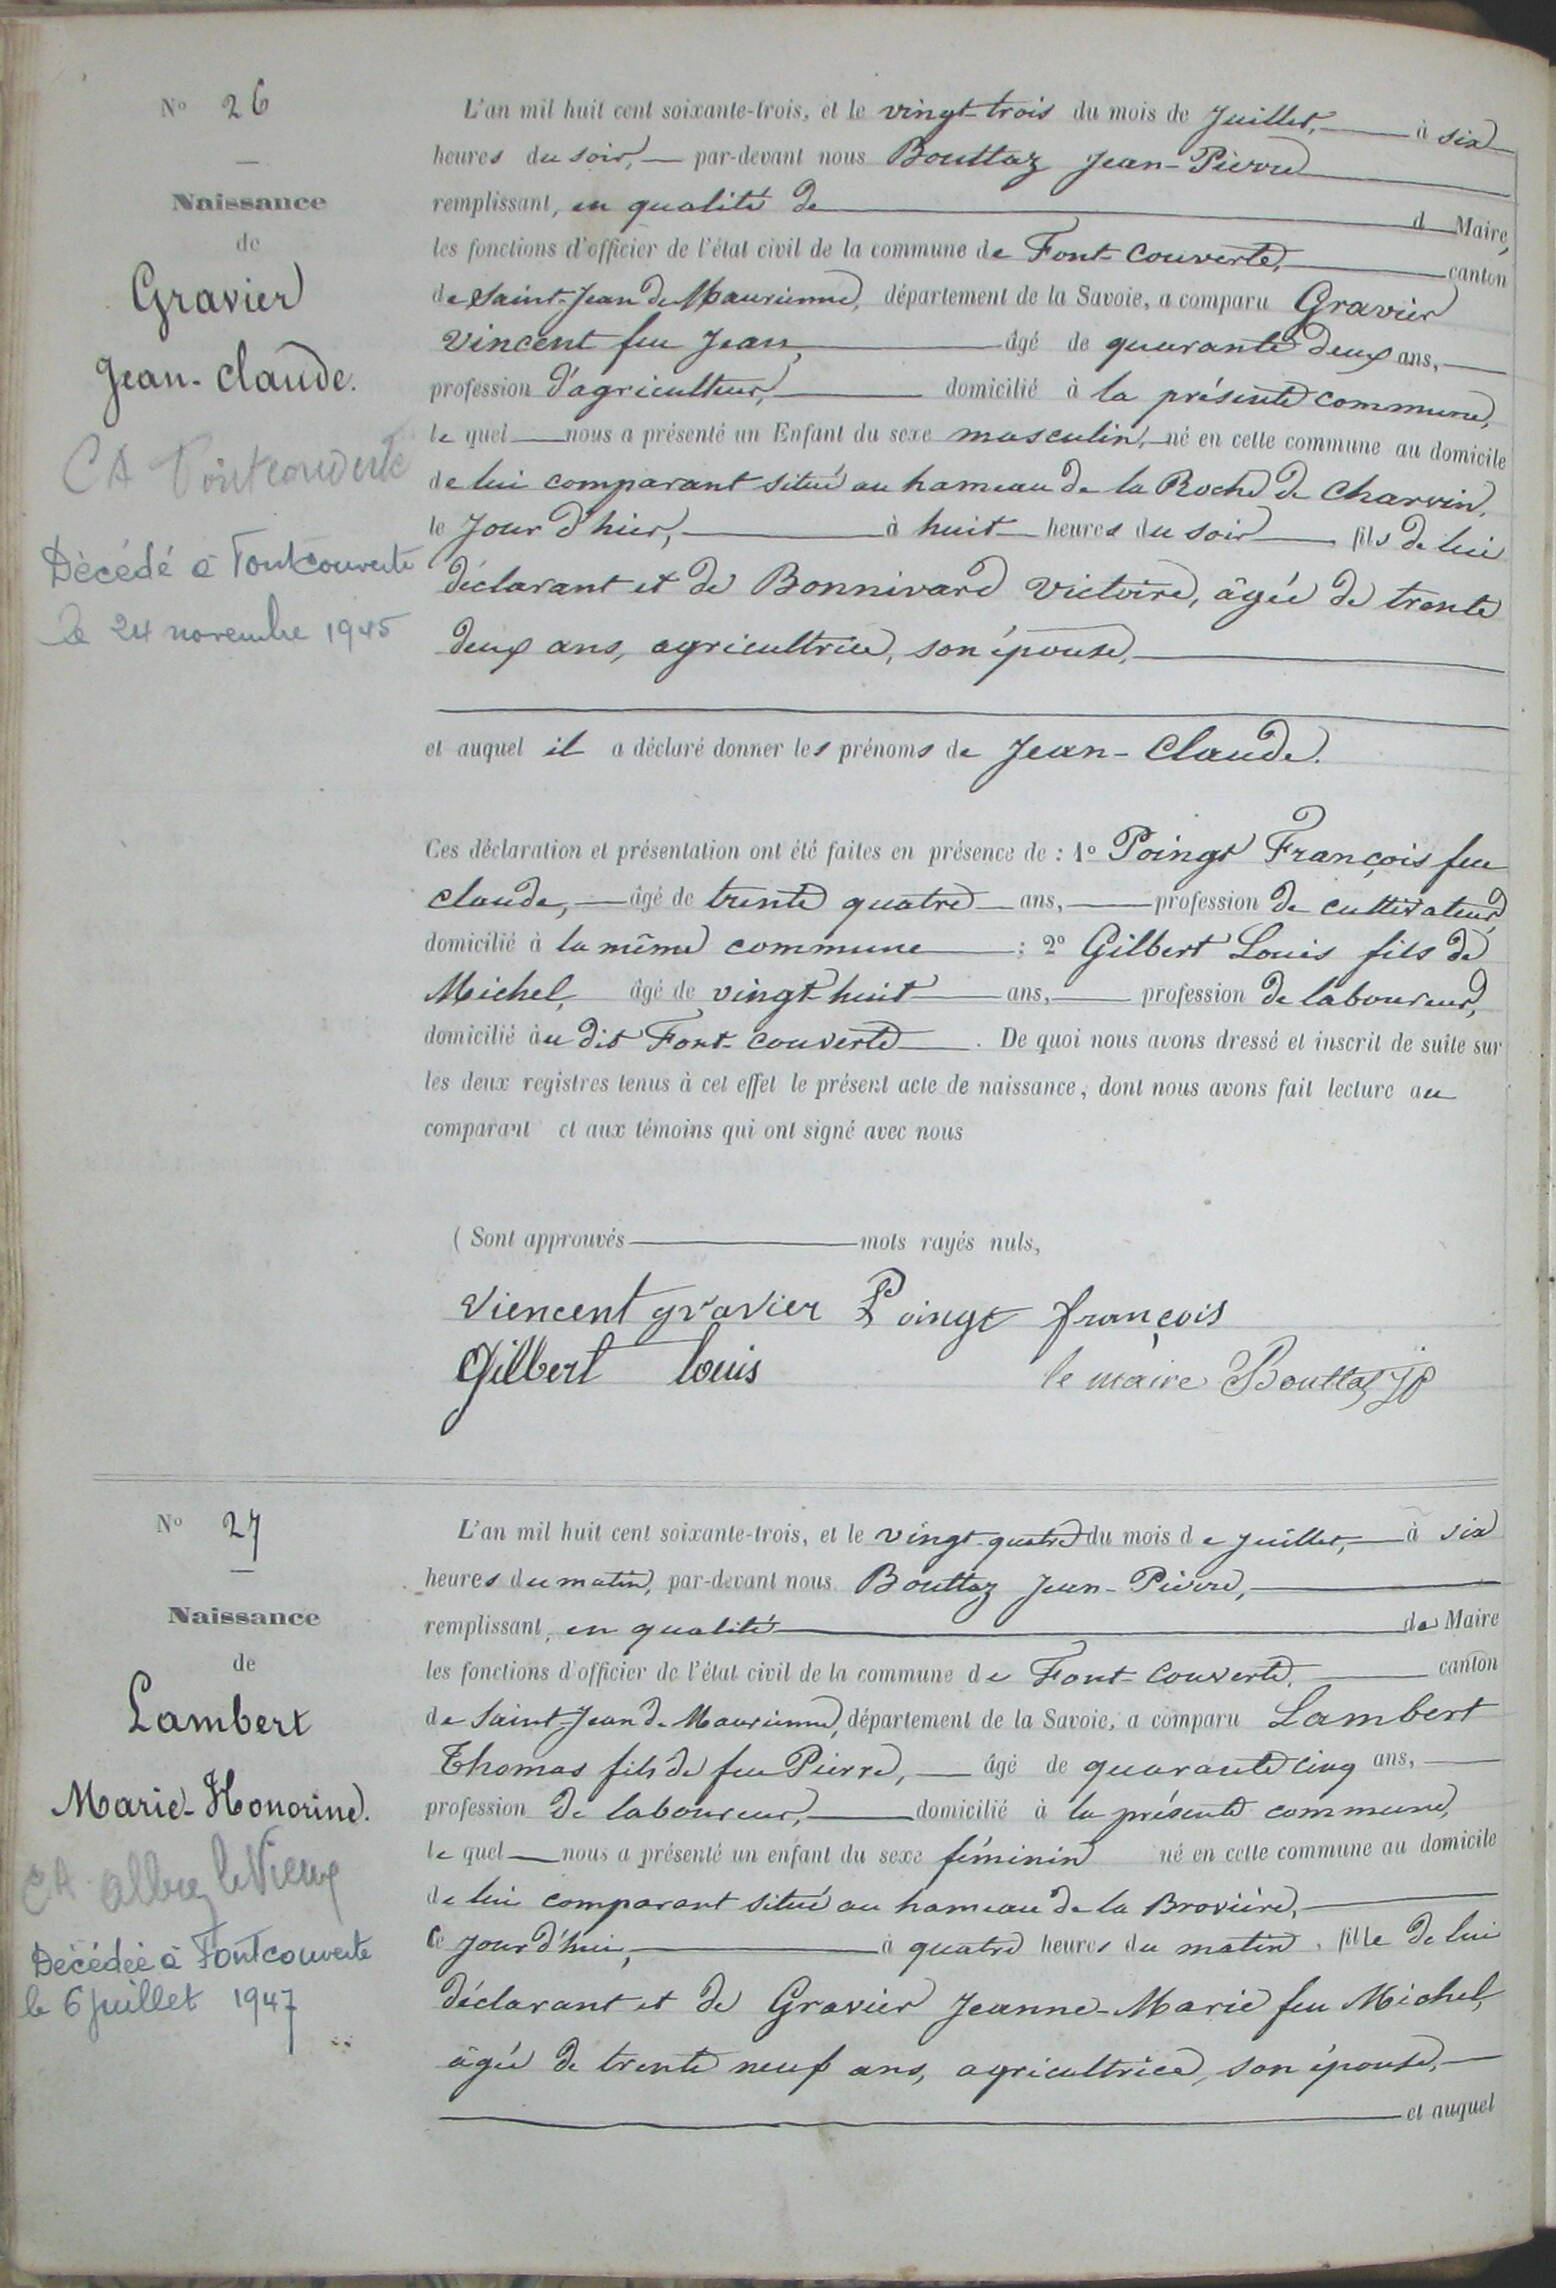 N° 26
Naissance
de
Gravier
Jean-Claude.
CA Fontcouverte
Décédé à Fontcouverte
le 24 novembre 1945
L'an mil huit cent soixante-trois, et le vingt-trois du mois de Juillet, à six
heures du soir, par-devant nous Bouttaz Jean-Pierre
remplissant, en qualité de d Maire,
les fonctions d'officier de l'état civil de la commune de Font-Couverte, canton
de Saint-Jean de Maurienne, département de la Savoie, a comparu Gravier
Vincent feu Jean, âgé de quarante deux ans,
profession d'agriculteur, domicilié à la présente commune,
le quel nous a présenté un Enfant du sexe masculin, né en cette commune au domicile
de lui comparant situé au hameau de la Roche de Charvin,
le Jour d'hier, à huit heures du soir fils de lui
déclarant et de Bonnivard Victoire, âgée de trente
deux ans, agricultrice, son épouse,
et auquel il a déclaré donner les prénoms de Jean-Claude.
Ces déclaration et présentation ont été faites en présence de : 1° Poingt François feu
Claude, âgé de trente quatre ans, profession de cultivateur,
domicilié à la même commune : 2° Gilbert Louis fils de
Michel, âgé de vingt-huit ans, profession de laboureur,
domicilié àu dit Font-Couverte. De quoi nous avons dressé et inscrit de suite sur
les deux registres tenus à cet effet le présent acte de naissance, dont nous avons fait lecture au
comparant et aux témoins qui ont signé avec nous
( Sont approuvés mots rayés nuls,
Viencent gravier Poingt françois
Gilbert louis le maire Bouttaz JP
N° 27
Naissance
de
Lambert
Marie-Honorine.
CA albiez le Vieux
Décédée à Fontcouverte
le 6 juillet 1947
L'an mil huit cent soixante-trois, et le vingt-quatre du mois de Juillet, à six
heures du matin, par-devant nous Bouttaz Jean-Pierre,
remplissant, en qualité de Maire
les fonctions d'officier de l'état civil de la commune de Font-Couverte, canton
de Saint-Jean de Maurienne, département de la Savoie, a comparu Lambert
Thomas fils de feu Pierre, âgé de quarante cinq ans,
profession de laboureur, domicilié à la présente commune,
le quel nous a présenté un enfant du sexe féminin né en cette commune au domicile
de lui comparant situé au hameau de la Brovière,
ce jour d'hui, à quatre heures du matin, fille de lui
déclarant et de Gravier Jeanne-Marie feu Michel,
âgée de trente neuf ans, agricultrice, son épouse,
et auquel